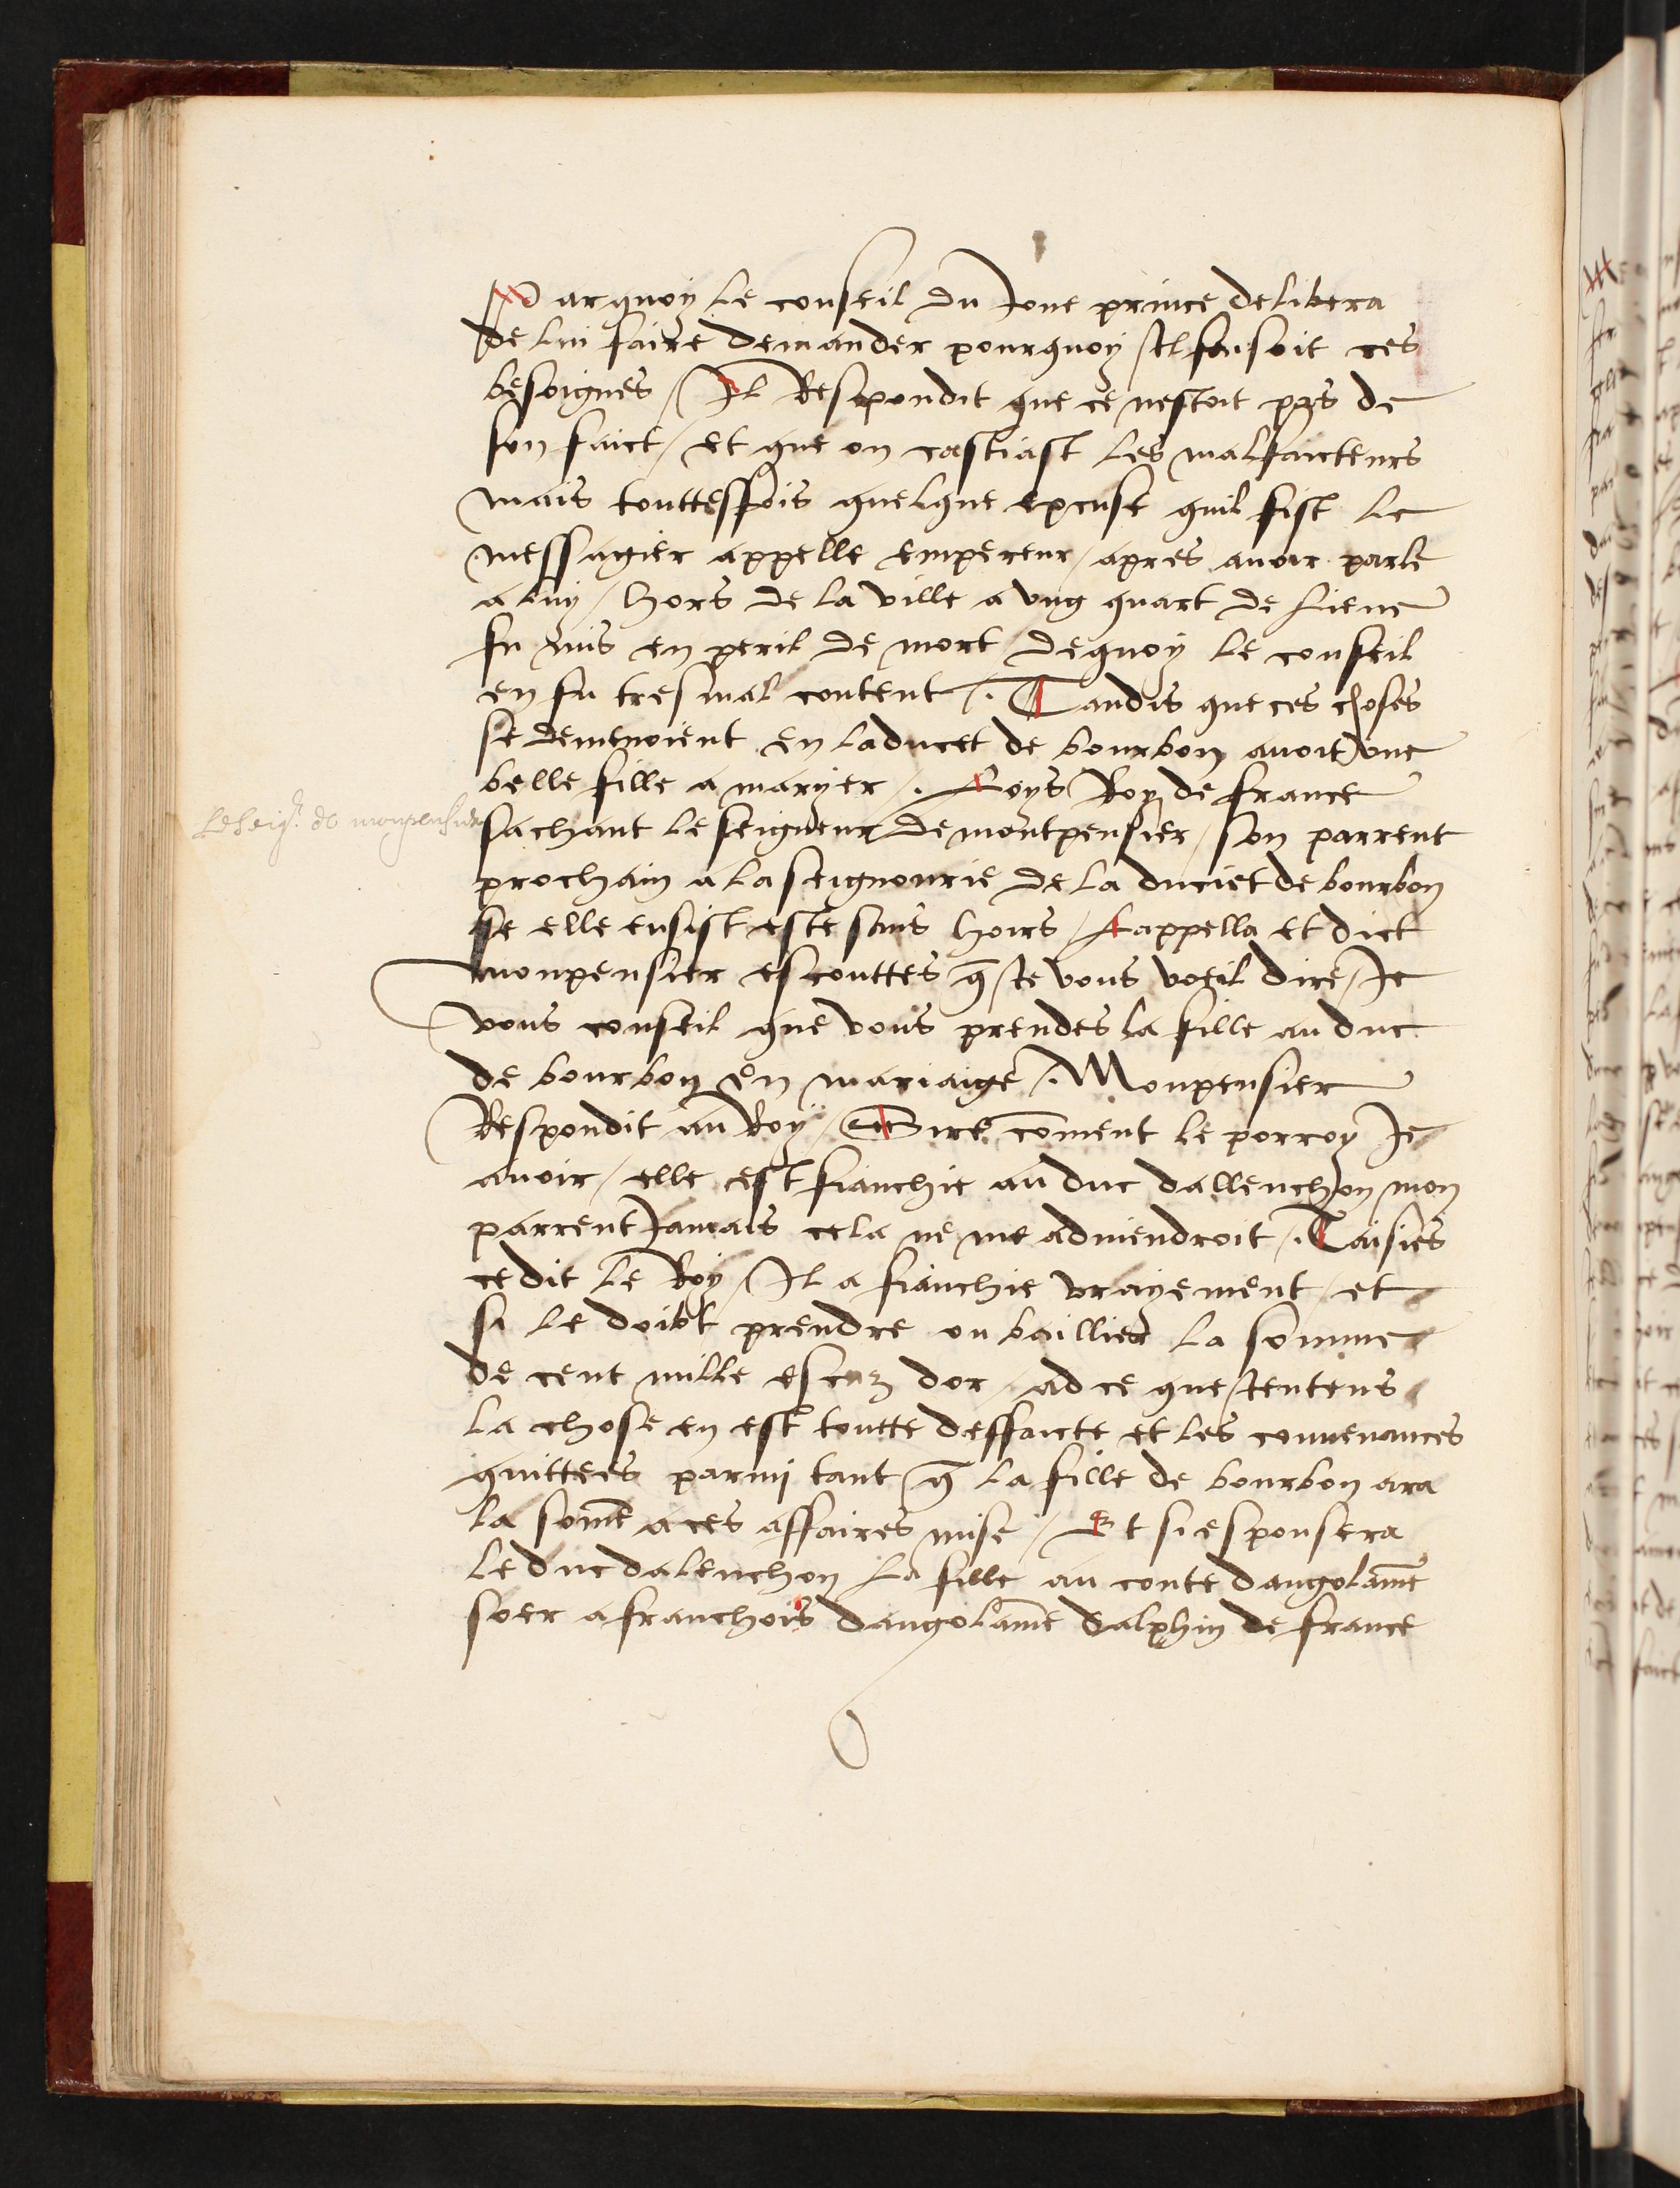 Parquoy le conseil du Jone prince delibera
de luy faire demander pourquoy Il faisoit ces
besoignes / Il Respondit que ce nestoit pas de
son faict / et que on castiast les malfaicteurs
mais touttesfois quelque excuse quil fist le
messagier appelle empereur / apres avoir parle
a luy / hors de la ville a ung quart de lieue
fu mis en peril de mort / dequoy le conseil
en fu tres mal content /. Tandis que ces choses
se demenoient en la ducet de bourbon avoit une
belle fille a maryer /. Loys Roy de france
Le seigr. de monpensier
sachant le seigneur de montpensier / son parrent
prochain a la seignourie de la duciet de bourbon
se elle eusist este sans hoirs / Lappella et dict
monpensier escouttes q̄ Je vous voeil dire / Je
vous conseil que vous prendes la fille au duc
de bourbon en mariaige /. Monpensier
Respondit au Roy / Sire com̄ent le porroy Je
avoir / elle est fianchie au duc dallenchon mon
parrent Jamais cela ne me adviendroit /. Taisies
ce dit le Roy / Il a fianchie vrayement / et
si le doibt prendre ou baillier la somme
de cent mille escuz dor / ad ce que Jentens
la chose en est toutte deffaicte et les convenances
quittees parmy tant q̄ la fille de bourbon ara
la som̄e a ces affaires mise / Et si espousera
le duc dalenchon la fille au conte dangolam̄e
soer a franchois dangolam̄e dalphin de france